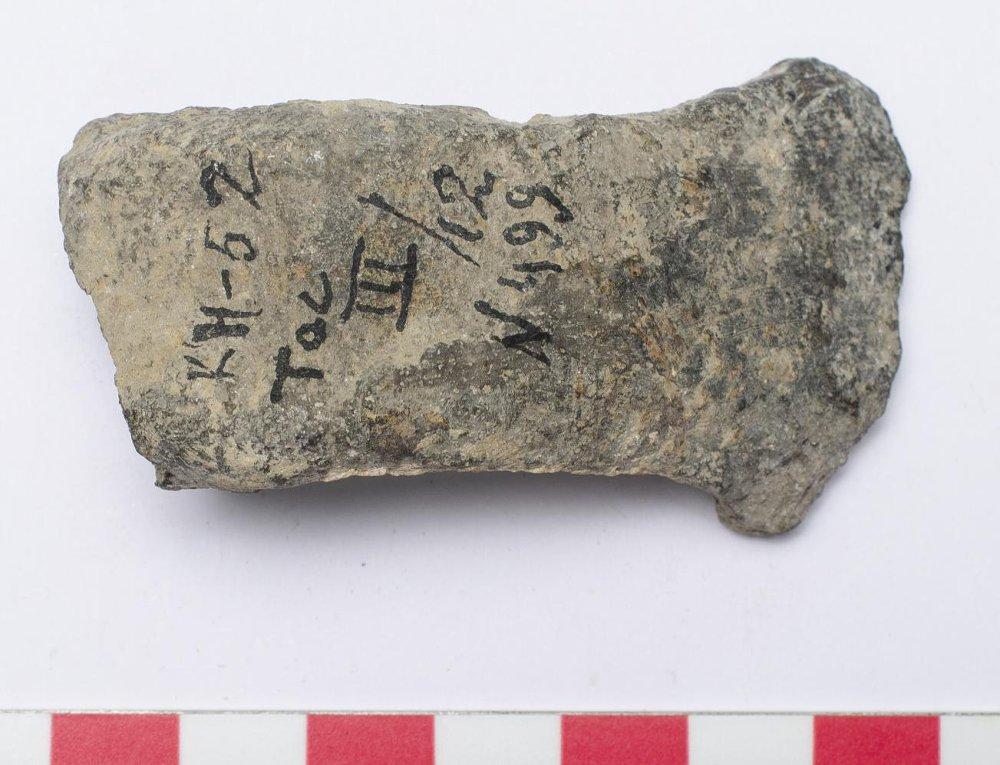 КН-52
Тос
III/12
N 499